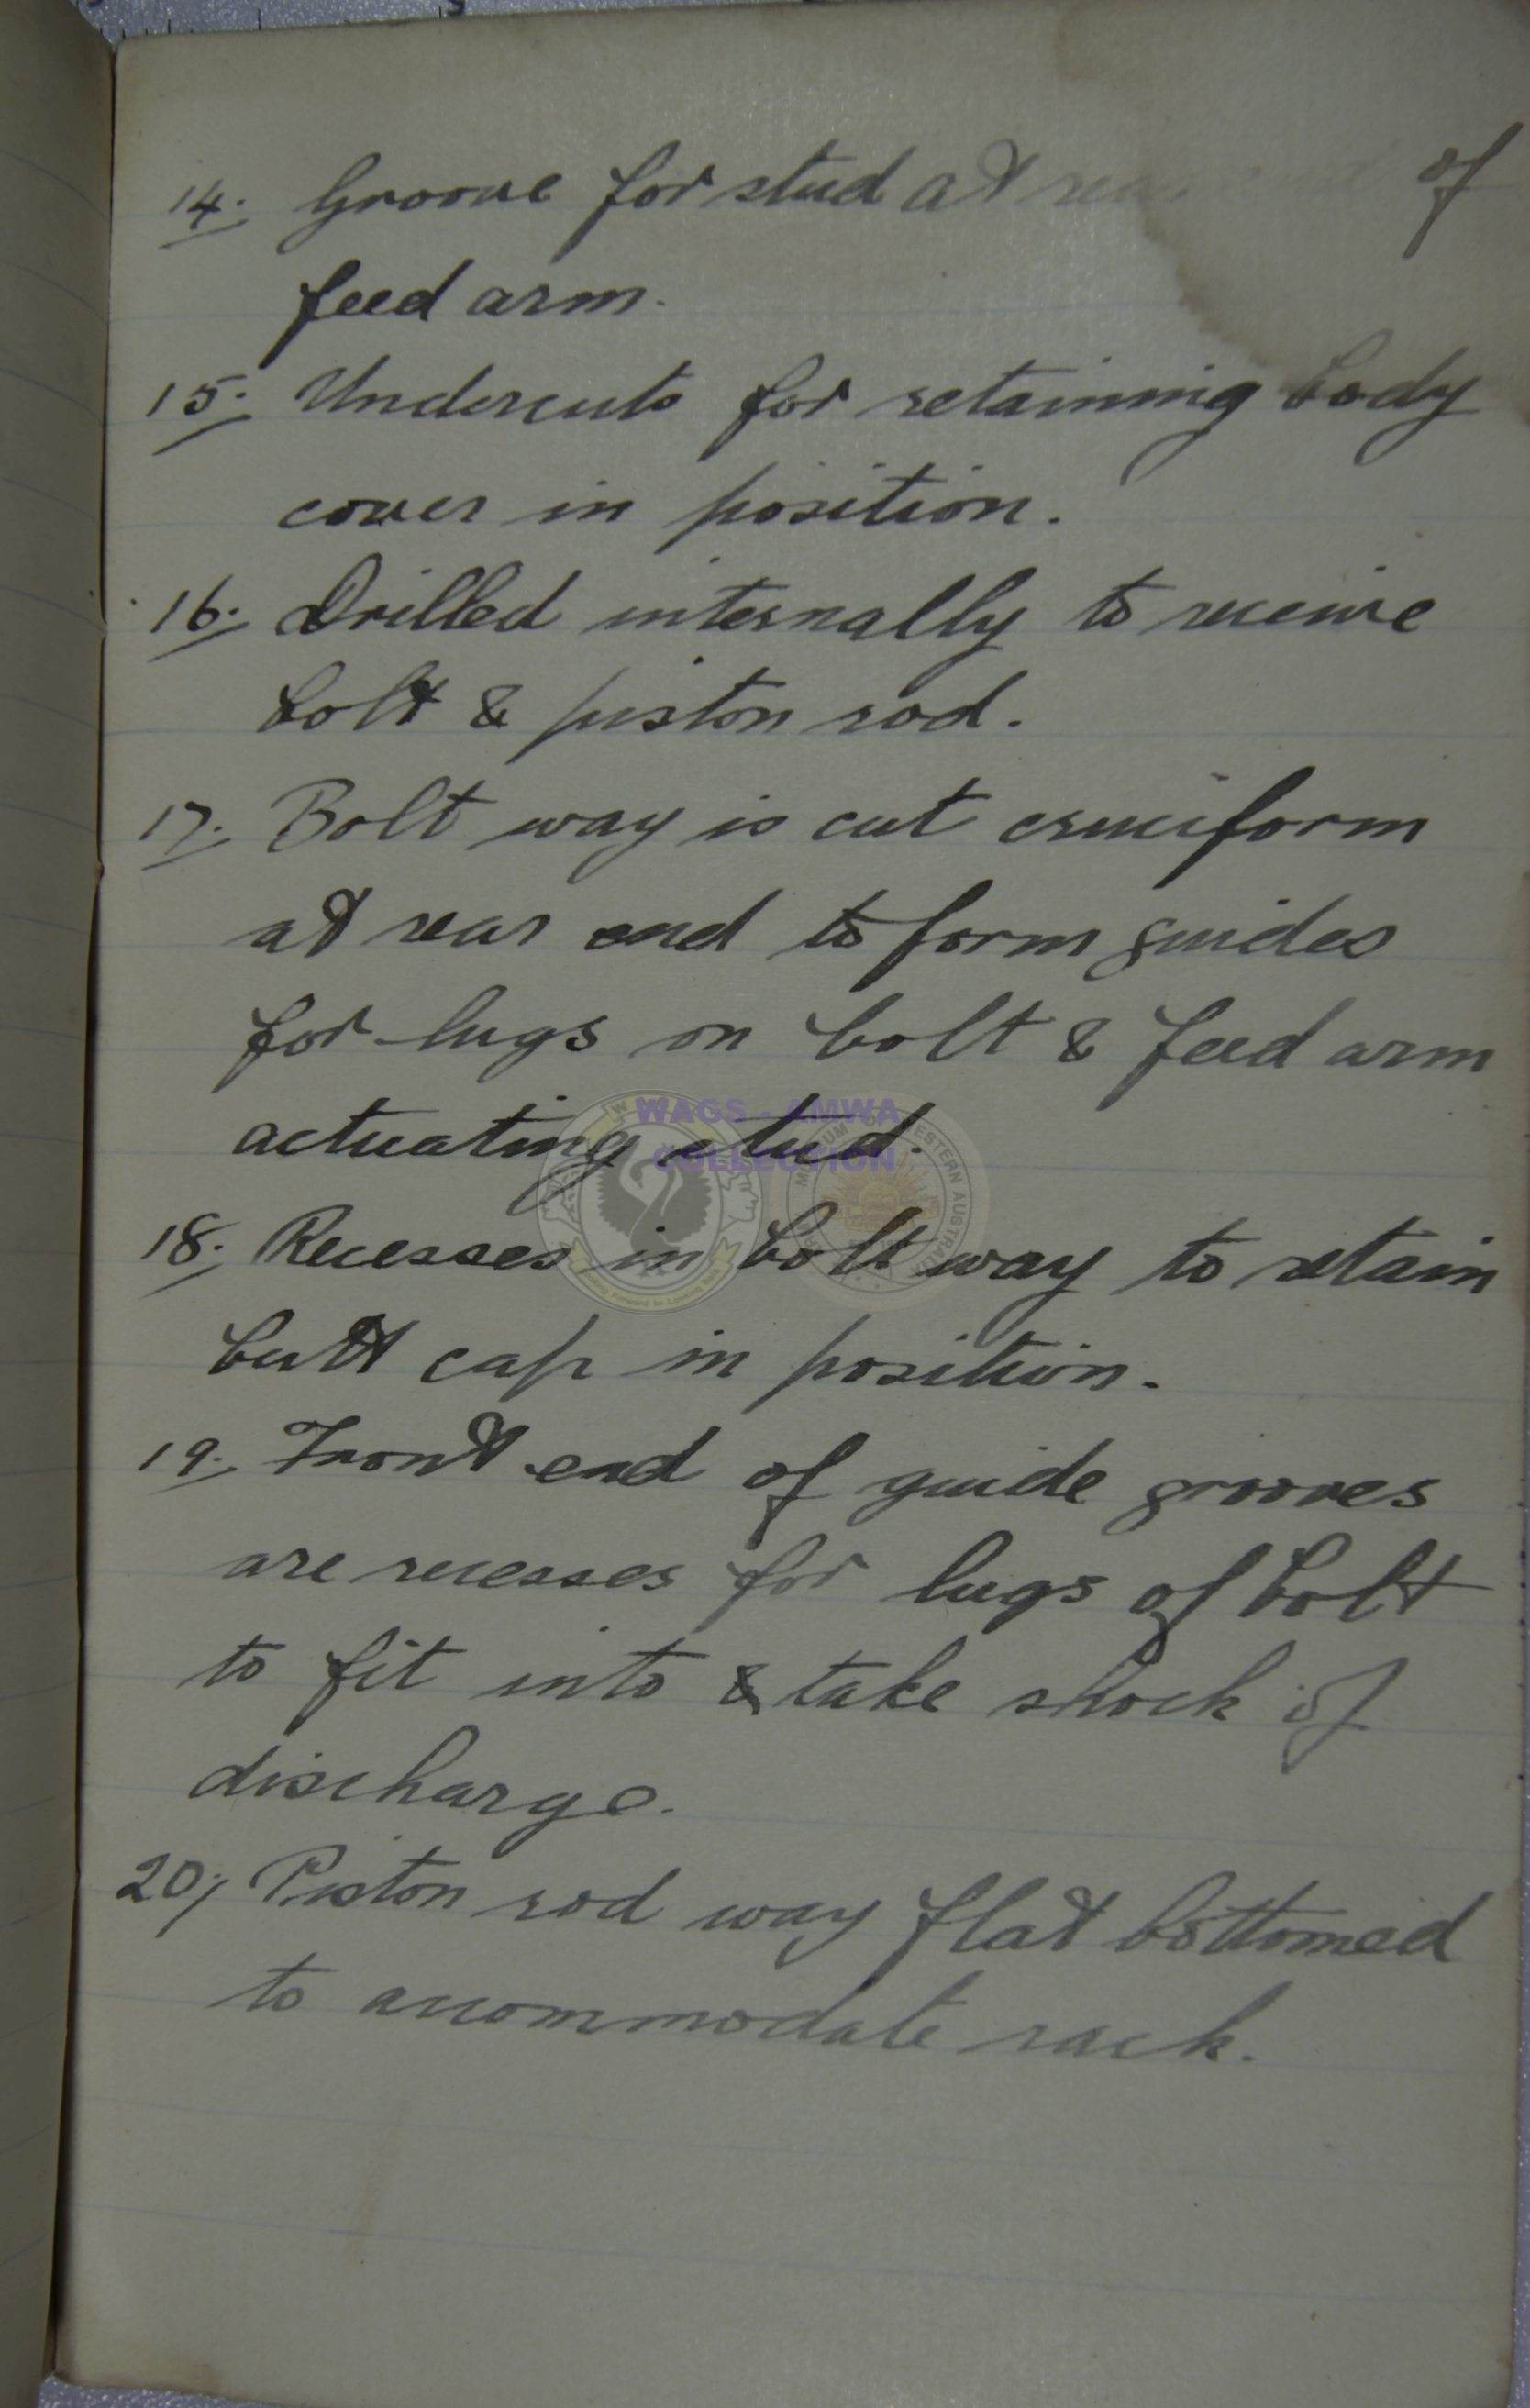 14. Groove for stud at rear end of
feed arm.
15. Undercuts for retaining body
cover in position.
16. Drilled internally to receive
bolt & piston rod.
17. Bolt way is cut cruciform
at rear end to form guides
for lugs on bolt & feed arm
actuating stud.
WAGS - AMWA
COLLECTION
18. Recesses in bolt way to retain
butt cap in position.
19. Front end of guide grooves
are recesses for lugs of bolt
to fit into & take shock of
discharge.
20, Piston rod way flat bottomed
to accommodate rack.